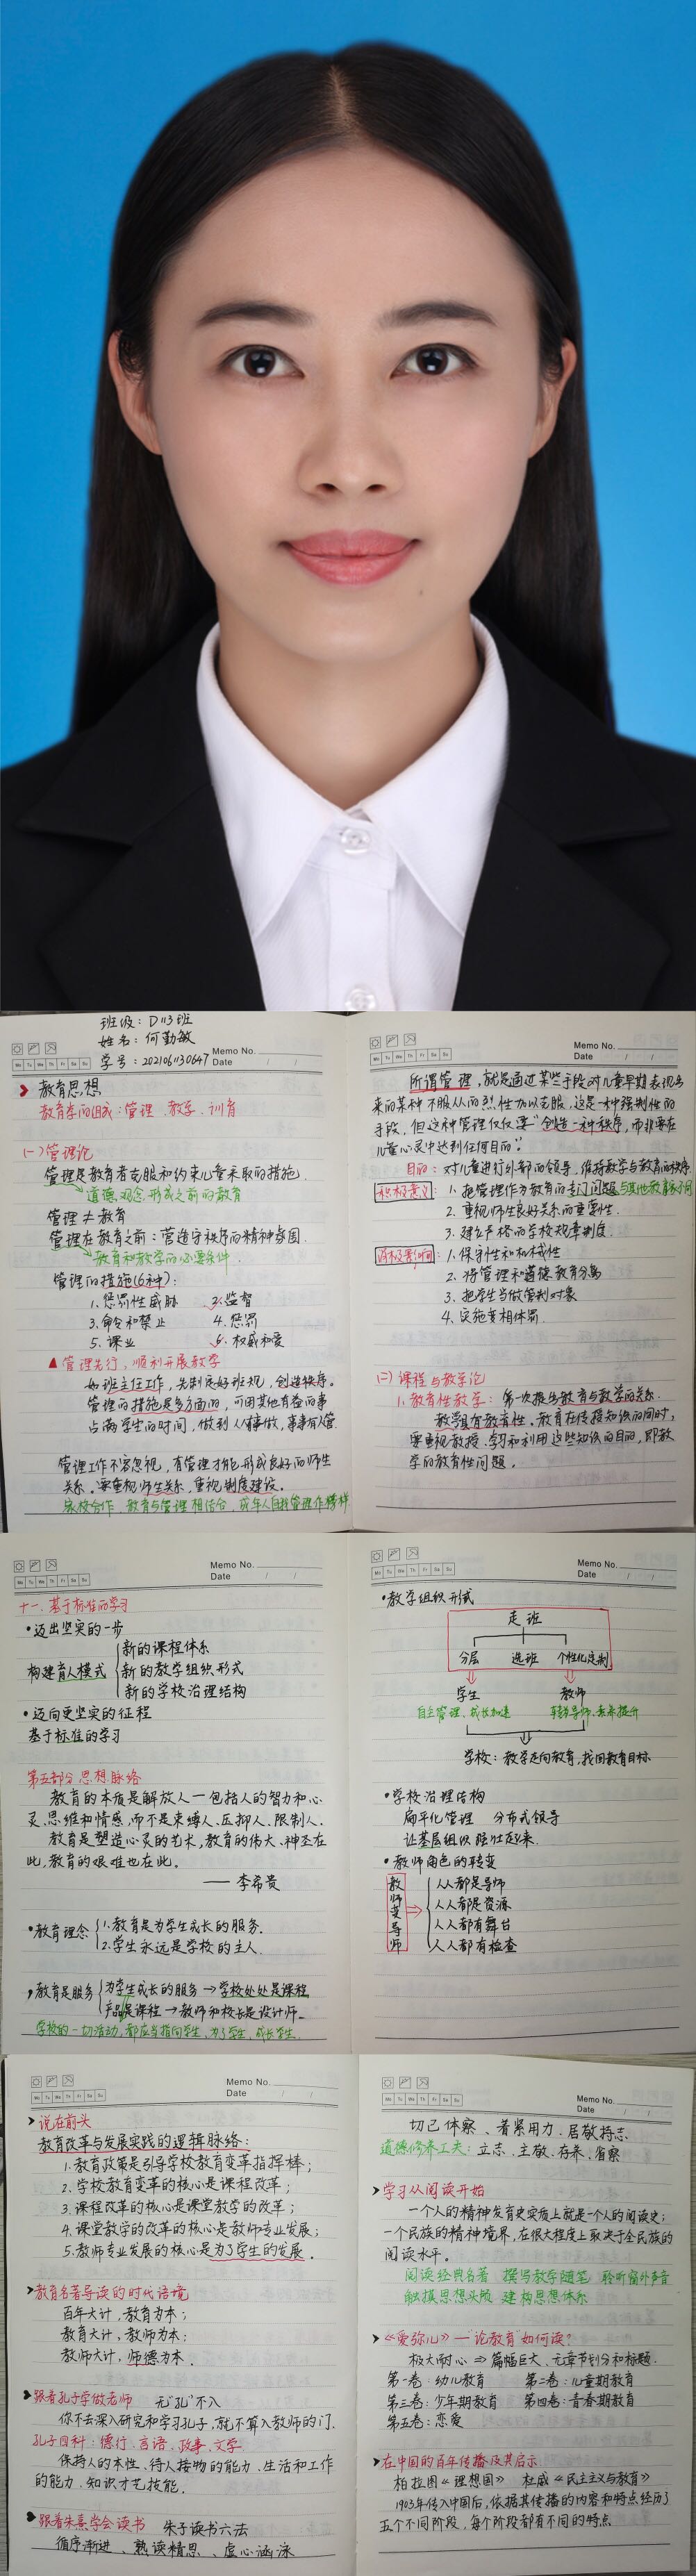 班级：D113班
姓名：何勤敏
学号：202106130647
Memo No.
Mo Tu We Th Fr Sa Su
Date / /
教育思想
教育学的组成：管理、教学、训育
(一)管理论
管理是教育者克服和约束儿童采取的措施.
道德观念形成之前的教育
管理≠教育
管理在教育之前：营造守秩序的精神氛围.
教育和教学的必要条件
管理的措施(6种)：
1.惩罚性威胁 2.监督
3.命令和禁止 4.惩罚
5.课业 6.权威和爱
▲管理先行，顺利开展教学
如班主任工作，先制定好班规，创造秩序。
管理的措施是多方面的，可用其他有益的事
占满学生的时间，做到人人有事做，事事有人管.
管理工作不容忽视，有管理才能形成良好的师生
关系。要重视师生关系，重视制度建设。
家校合作、教育与管理相结合，成年人自我管理作榜样
Memo No.
Mo Tu We Th Fr Sa Su
Date / /
所谓管理，就是通过某些手段对儿童早期表现出
来的某种不服从的烈性加以克服，这是一种强制性的
手段，但这种管理仅仅要“创造一种秩序，而非要在
儿童心灵中达到任何目的”.
目的：对儿童进行外部的领导，维持教学与教育的秩序.
积极意义：1.把管理作为教育的专门问题与其他教育
2.重视师生良好关系的重要性.
3.建立严格的学校规章制度.
消极影响：1.保守性和机械性
2.将管理和道德教育分离
3.把学生当做管制对象
4.实施变相体罚.
(二)课程与教学论
1.教育性教学：第一次提出教育与教学的关系.
教学具有教育性。教育在传授知识的同时，
要重视教授、学习和利用这些知识的目的，即教
学的教育性问题.
Memo No.
Mo Tu We Th Fr Sa Su
Date / /
十一、基于标准的学习
•迈出坚实的一步
构建育人模式
新的课程体系
新的教学组织形式
新的学校治理结构
•迈向更坚实的征程
基于标准的学习
第五部分 思想脉络
教育的本质是解放人—包括人的智力和心
灵、思维和情感，而不是束缚人、压抑人、限制人.
教育是塑造心灵的艺术，教育的伟大、神圣在
此，教育的艰难也在此.
——李希贵
•教育理念
1.教育是为学生成长的服务.
2.学生永远是学校的主人.
•教育是服务
为学生成长的服务→学校处处是课程
产品是课程→教师和校长是设计师.
学校的一切活动，都应当指向学生、为了学生、成长学生.
Memo No.
Mo Tu We Th Fr Sa Su
Date / /
•教学组织形式
走班
分层 选班 个性化定制
学生 教师
自主管理、成长加速 转变导师、素养提升
学校：教学走向教育，找回教育目标
•学校治理结构
扁平化管理 分布式领导
让基层组织强壮起来.
•教师角色的转变
教师变导师
人人都是导师
人人都是资源
人人都有舞台
人人都有检查
Memo No.
Mo Tu We Th Fr Sa Su
Date / /
说在前头
教育改革与发展实践的逻辑脉络：
1.教育政策是引导学校教育变革指挥棒；
2.学校教育变革的核心是课程改革；
3.课程改革的核心是课堂教学的改革；
4.课堂教学的改革的核心是教师专业发展；
5.教师专业发展的核心是为了学生的发展.
教育名著导读的时代语境
百年大计，教育为本；
教育大计，教师为本；
教师大计，师德为本.
跟着孔子学做老师 无“孔”不入
你不去深入研究和学习孔子，就不算入教师的门.
孔子四科：德行、言语、政事、文学.
保持人的本性、待人接物的能力、生活和工作
的能力、知识才艺技能.
跟着朱熹学会读书 朱子读书六法
循序渐进、熟读精思、虚心涵泳
Memo No.
Mo Tu We Th Fr Sa Su
Date / /
切己体察、着紧用力、居敬持志.
道德修养工夫：立志、主敬、存养、省察
学习从阅读开始
一个人的精神发育史实质上就是一个人的阅读史；
一个民族的精神境界，在很大程度上取决于全民族的
阅读水平.
阅读经典名著 撰写教学随笔 聆听窗外声音
触摸思想头颅 建构思想体系
《爱弥儿》—“论教育”如何读？
极大耐心⇒篇幅巨大、无章节划分和标题.
第一卷：幼儿教育 第二卷：儿童期教育
第三卷：少年期教育 第四卷：青春期教育
第五卷：恋爱
在中国的百年传播及其启示
柏拉图《理想国》 杜威《民主主义与教育》
1903年传入中国后，依据其传播的内容和特点经历了
五个不同阶段，每个阶段都有不同的特点